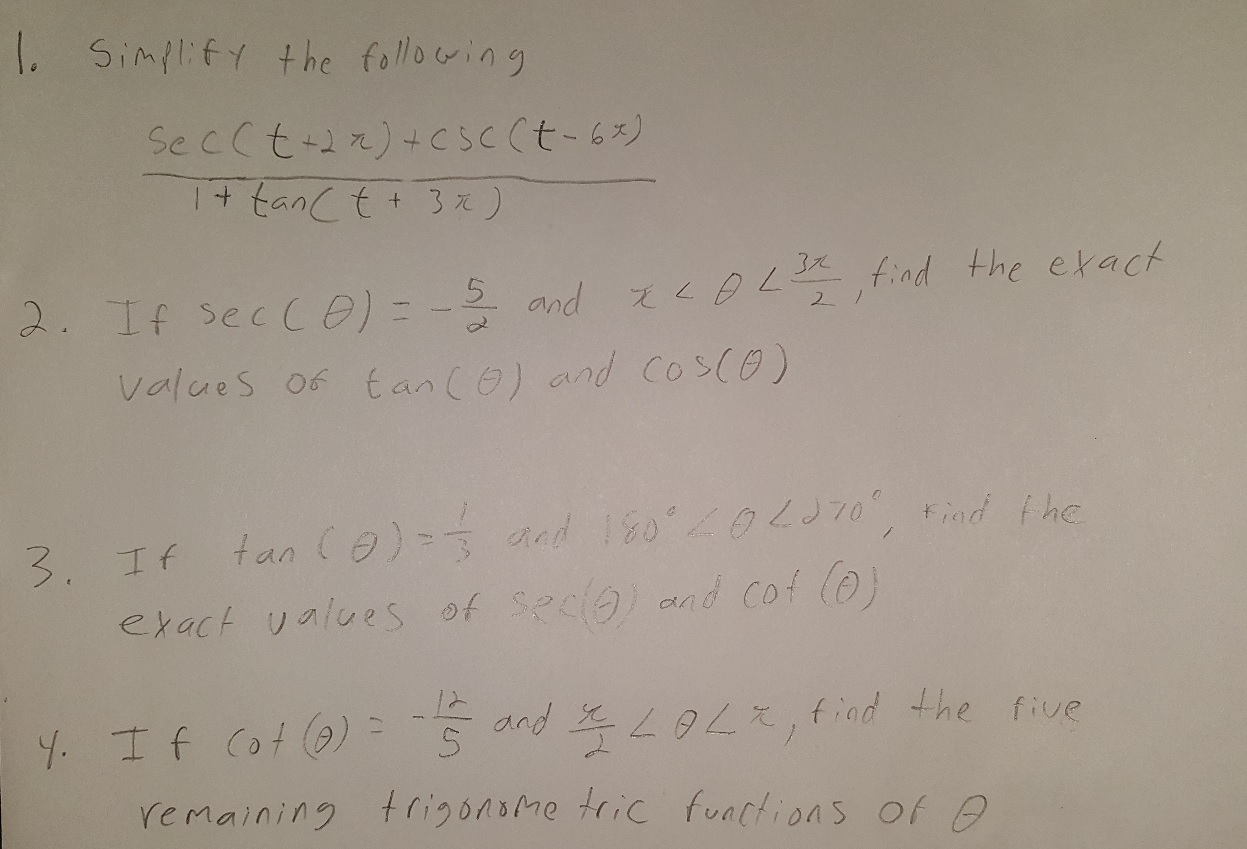 1. Simplify the following
sec(t+2π)+csc(t-6π)
1+tan(t+3π)
2. If sec(θ)=-5/2 and π<θ<3π/2, find the exact
values of tan(θ) and cos(θ)
3. If tan(θ)=1/3 and 180°<θ<270°, find the
exact values of sec(θ) and cot(θ)
4. If cot(θ)=-12/5 and π/2<θ<π, find the five
remaining trigonometric functions of θ